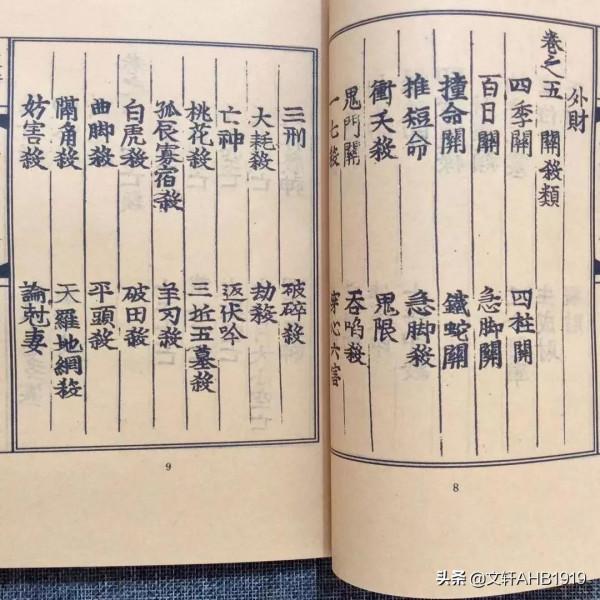 外財
卷之五 關殺類
四季關 四柱關
百日關 急脚關
撞命關 鐵蛇關
推短命 急脚殺
衝天殺 鬼限
鬼門關 吞啗殺
一七殺 穿心六害
8
三刑 破碎殺
大耗殺 劫殺
亡神 返伏吟
桃花殺 三坵五墓殺
孤辰寡宿殺 羊刃殺
白虎殺 破田殺
曲脚殺 平頭殺
隔角殺 天羅地網殺
妨害殺 論尅妻
9
头条 @文轩AHB1919